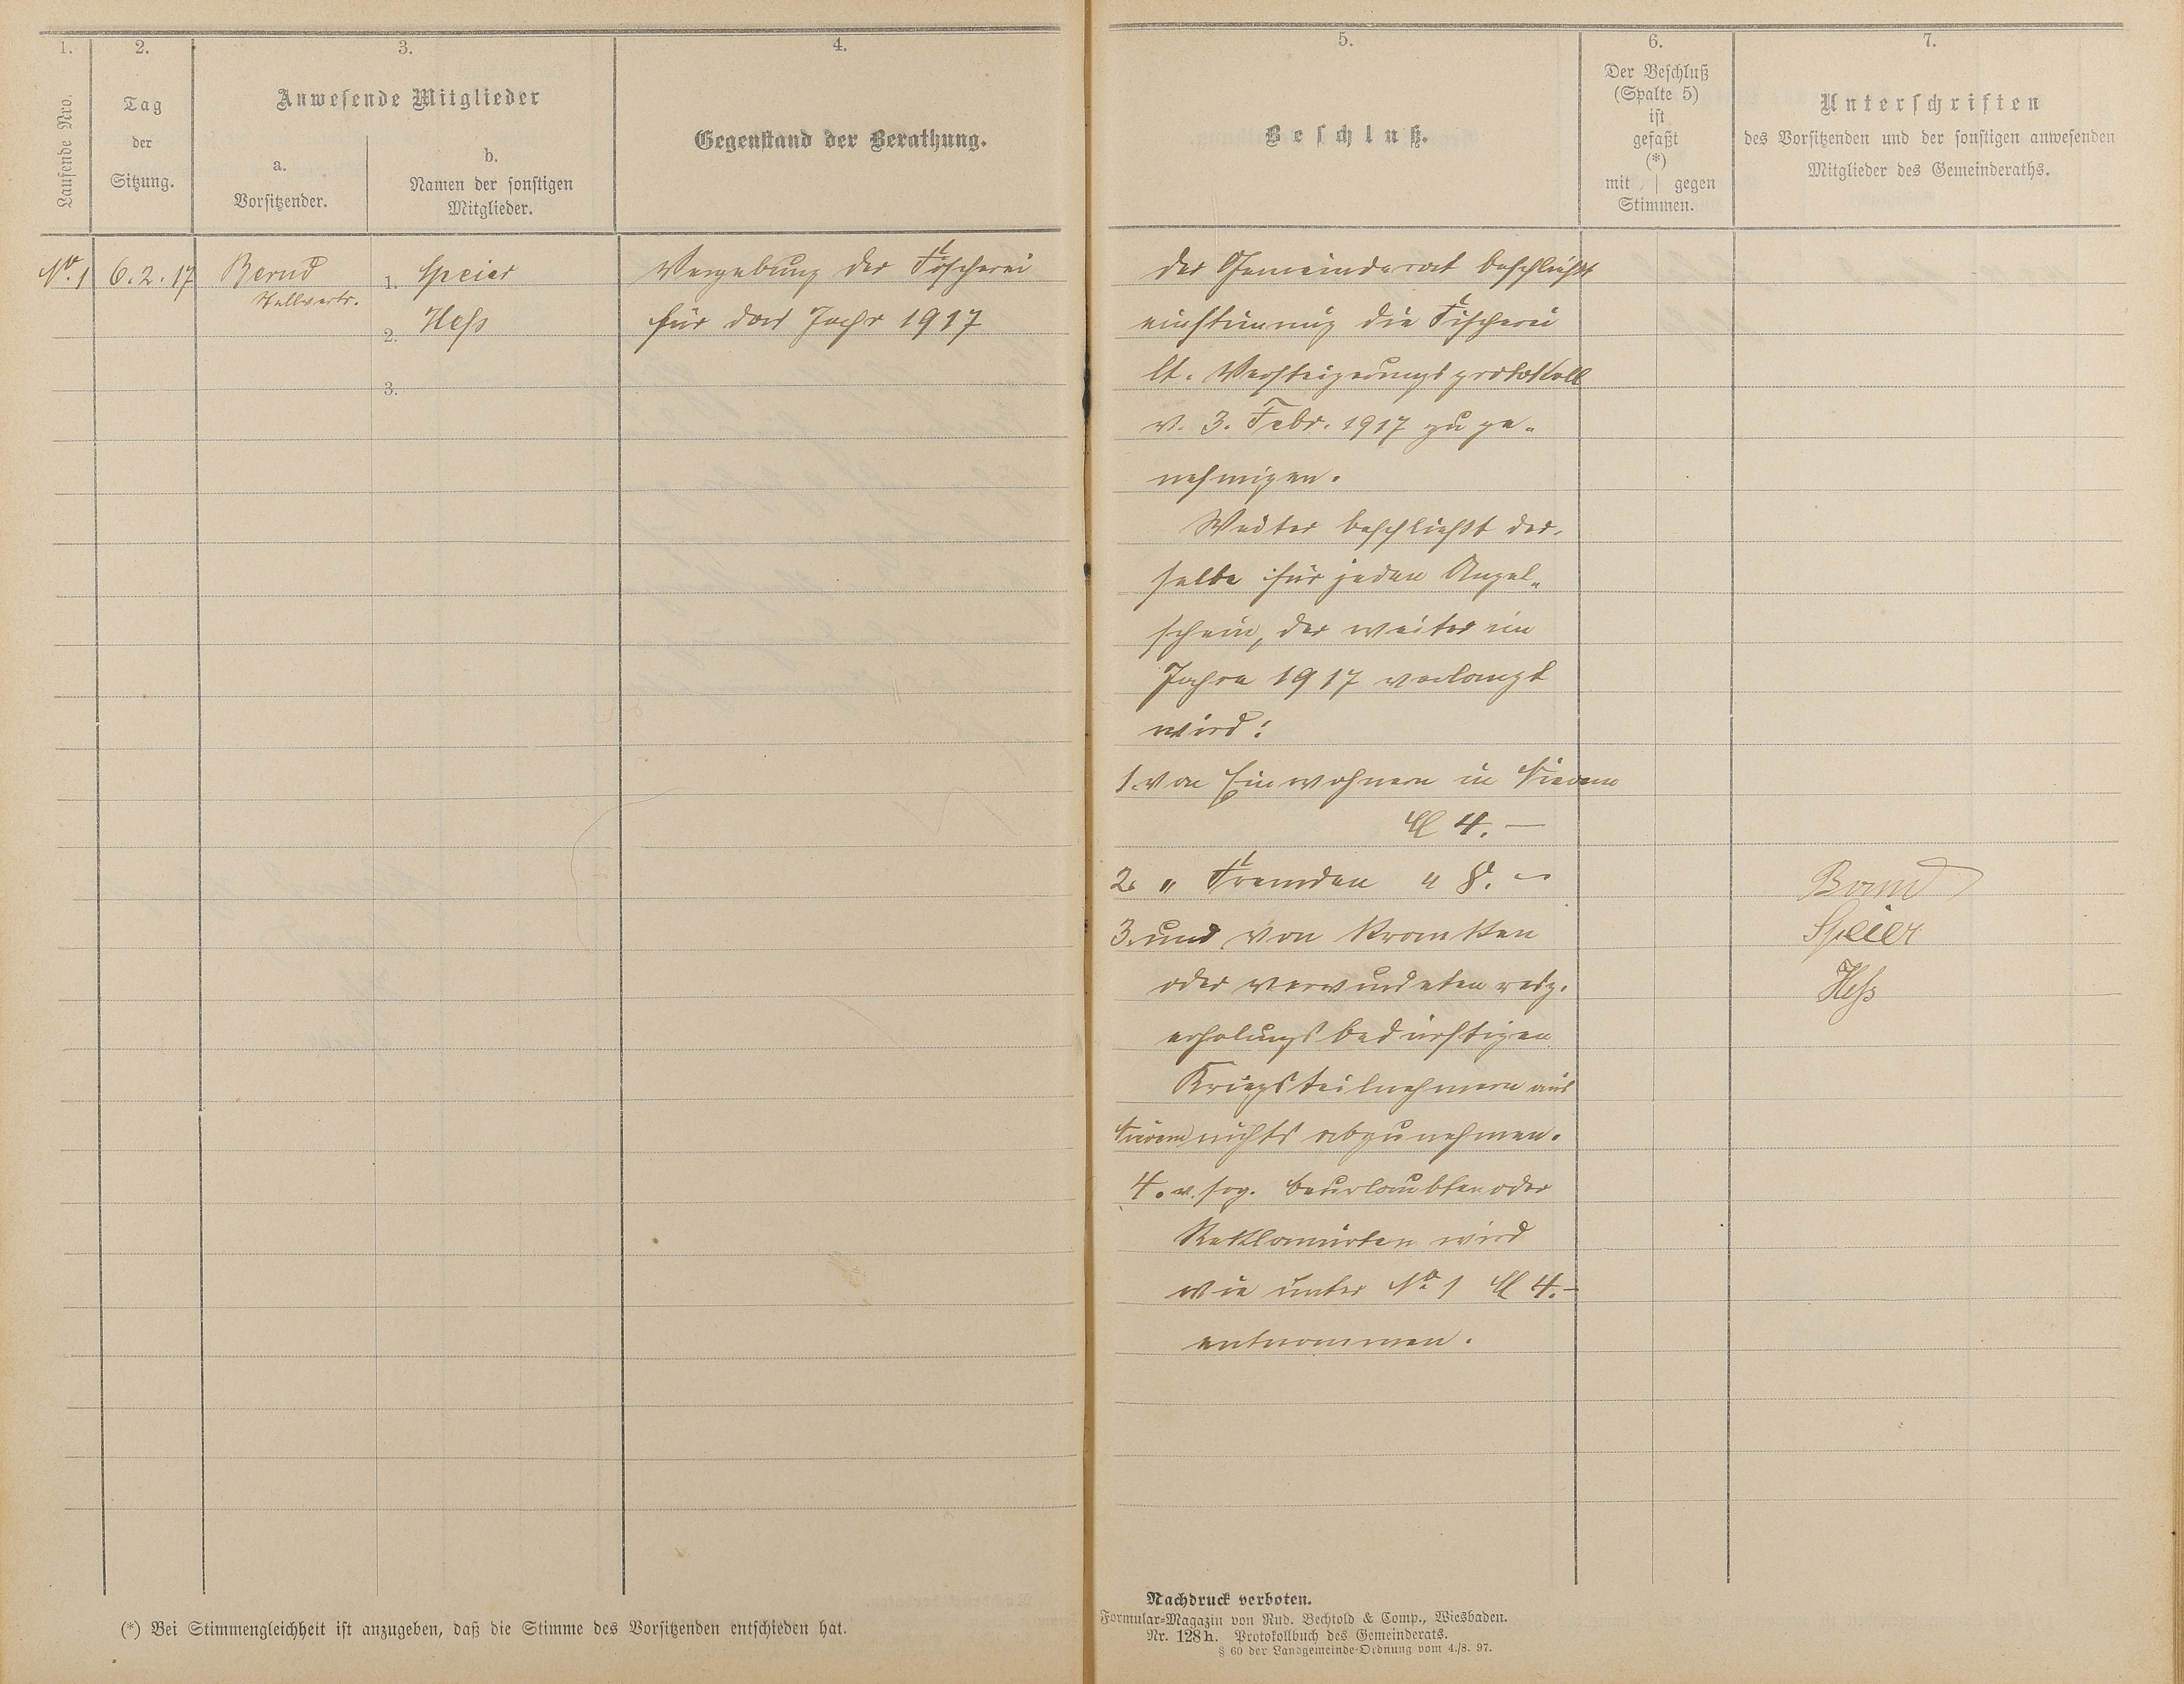 1.
Laufende Nro.
2.
Tag
der
Sitzung.
3.
Anwesende Mitglieder
a.
Vorsitzender.
b.
Namen der sonstigen
Mitglieder.
4.
Gegenstand der Berathung.
No. 1
6.2.17
Bernd
Stellvertr.
1. Speier
2. Heß
3.
Vergebung der Fischerei
für das Jahr 1917
(*) Bei Stimmengleichheit ist anzugeben, daß die Stimme des Vorsitzenden entschieden hat.
5.
Beschluß.
6.
Der Beschluß
(Spalte 5)
ist
gefaßt
(*)
mit | gegen
Stimmen.
7.
Unterschriften
des Vorsitzenden und der sonstigen anwesenden
Mitglieder des Gemeinderaths.
Der Gemeinderat beschließt
einstimmig die Fischerei
lt. Versteigerungsprotokoll
v. 3. Febr. 1917 zu ge-
nehmigen.
Weiter beschließt der-
selbe für jeden Angel-
schein, der weiter im
Jahre 1917 verlangt
wird:
1. von Einwohnern in
M 4.—
2. " Fremden " 8. —
3. und von Kranken
oder verwundeten resp.
erholungsbedürftigen
Kriegsteilnehmern aus
nichts abzunehmen.
4. v. sog. beurlaubten oder
Reklamirten wird
wie unter No. 1 M 4.-
entnommen.
Bernd
Speier
Heß
Nachdruck verboten.
Formular-Magazin von Rud. Bechtold & Comp., Wiesbaden.
Nr. 128h. Protokollbuch des Gemeinderats.
§ 60 der Landgemeinde-Ordnung vom 4./8. 97.